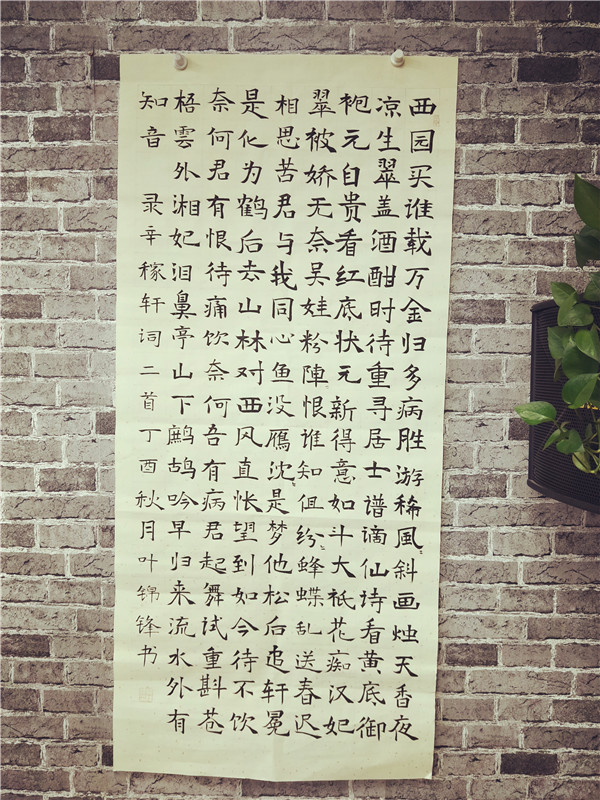 西园买谁载万金归多病胜游稀風〻斜画烛天香夜
凉生翠盖酒酣时待重寻居士谱谪仙诗看黄底御
袍元自贵看红底状元新得意如斗大祇花痴汉妃
翠被娇无奈吴娃粉陣恨谁知但纷〻蜂蝶乱送春迟
相思苦君与我同心鱼没雁沈是梦他松后追轩冕
是化为鹤后去山林对西风直怅望到如今待不饮
奈何君有恨待痛饮奈何吾有病君起舞试重斟苍
梧雲外湘妃泪鼻亭山下鹧鸪吟早归来流水外有
知音 录辛稼轩词二首丁酉秋月叶锦锋书